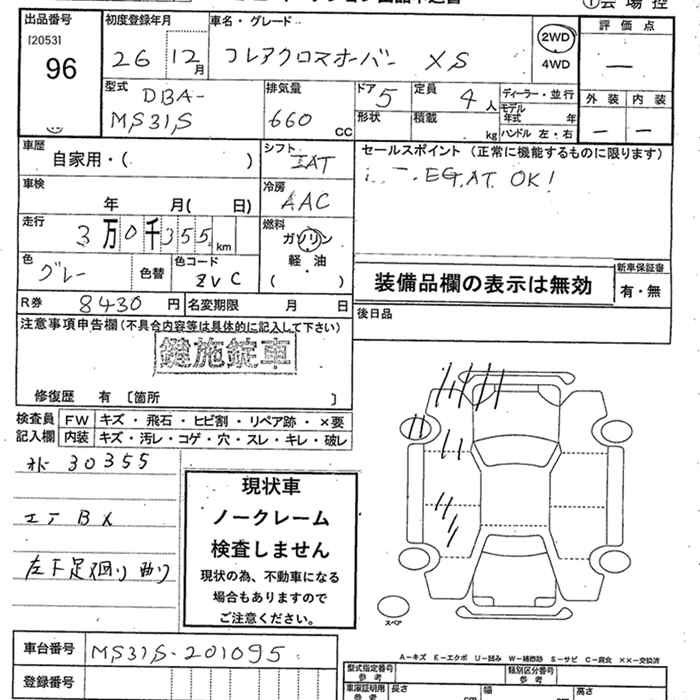 出品番号
[2053]
96
初度登録年月
26 12月
車名・グレード
フレアクロスオーバー XS
2WD
4WD
評価点
—
外装 内装
— —
型式
DBA-
MS31S
排気量
660 CC
ドア 5
形状
定員 4人
積載 kg
ディーラー・並行
モデル
年式 年
ハンドル 左・右
車歴
自家用・( )
シフト
IAT
セールスポイント(正常に機能するものに限ります)
EG.AT OK!
車検
年 月( 日)
冷房
AAC
走行
3万0千355km
燃料
ガソリン
軽・油
( )
色
グレー
色替
色コード
ZVC
装備品欄の表示は無効
新車保証書
有・無
R券 8430円
名変期限 月 日
後日品
注意事項申告欄(不具合内容等は具体的に記入して下さい)
鍵施錠車
修復歴 有 [箇所 ]
検査員
記入欄
FW キズ・飛石・ヒビ割・リペア跡・×要
内装 キズ・汚レ・コゲ・穴・スレ・キレ・破レ
オド 30355
エアBX
左下足廻り曲り
現状車
ノークレーム
検査しません
現状の為、不動車になる
場合もありますので
ご注意ください。
スペア
車台番号 MS31S-201095
登録番号
A-キズ E-エクボ U-凹み W-補修跡 S-サビ C-腐食 ××-交換済
型式指定番号
参考
類別区分番号
参考
車庫証明用
参考
長さ cm
幅 cm
高さ cm